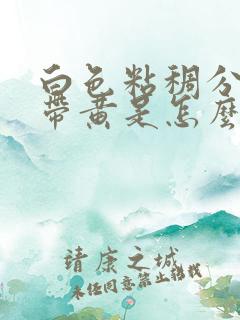 白色粘稠分
带黄是怎麽
靖康之城
未经同意禁止转载